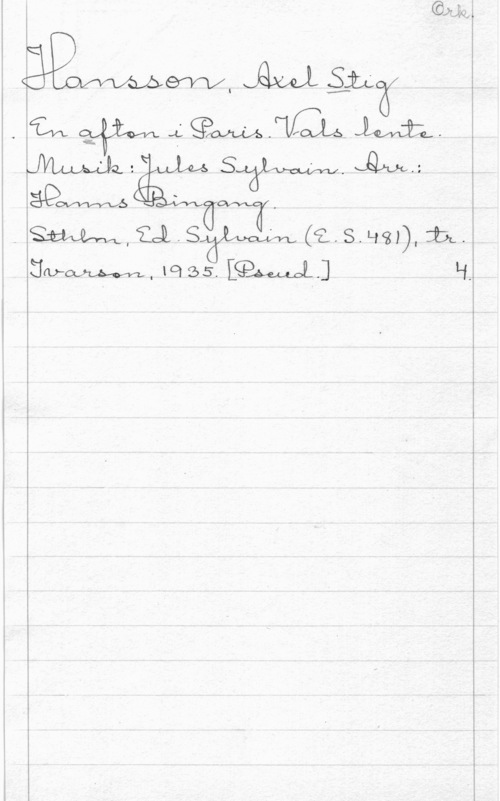 Ork.
Hansson, Axel Stig
En afton i Paris. Vals lente.
Musik: Jules Sylvain. Arr.:
Hanns Bingang.
Sthlm, Ed. Sylvain (E.S.481), tr.
Ivarson, 1935. [Pseud.] 4.